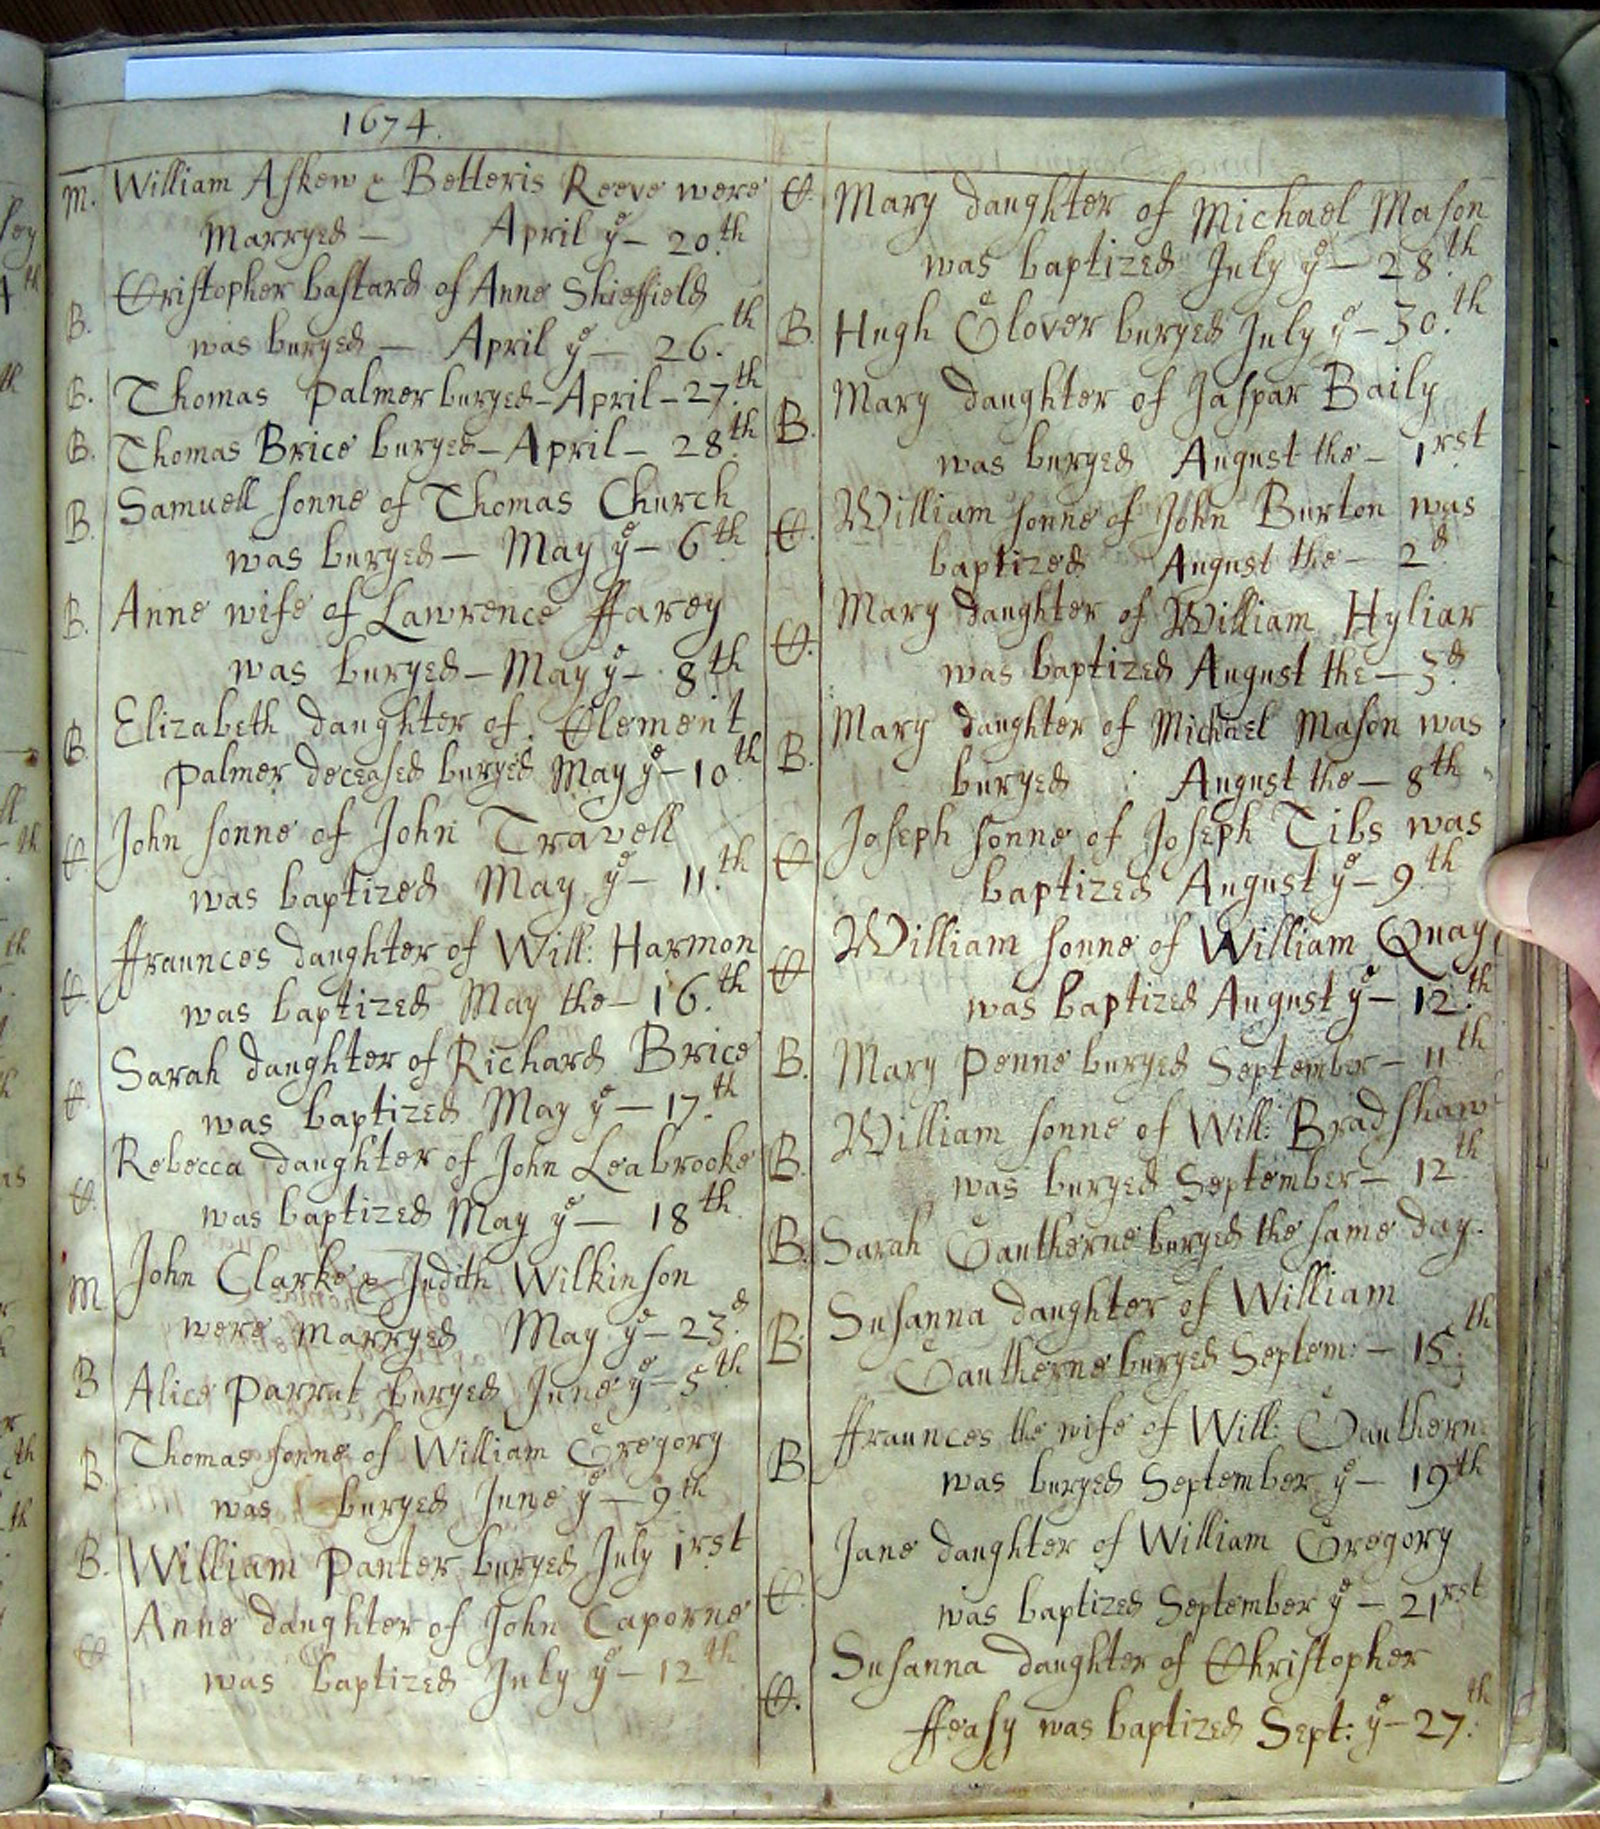 1674.
M. William Askew & Betteris Reeve were
Marryed — April yᵉ — 20.th
Christopher bastard of Anne Shieffield
B. was buryed — April yᵉ — 26.th
B. Thomas Palmer buryed — April — 27.th
B. Thomas Brice buryed — April — 28.th
B. Samuell sonne of Thomas Church
was buryed — May yᵉ — 6.th
B. Anne wife of Lawrence ffarey
was buryed — May yᵉ — 8.th
B. Elizabeth daughter of Clement
Palmer deceased buryed May yᵉ — 10.th
C. John sonne of John Travell
was baptized May yᵉ — 11.th
ffraunces daughter of Will: Harmon
C. was baptized May the — 16.th
Sarah daughter of Richard Brice
C. was baptized May yᵉ — 17.th
Rebecca daughter of John Leabrooke
C. was baptized May yᵉ — 18th.
M John Clarke & Judith Wilkinson
were Marryed May yᵉ — 23.d
B Alice Parrat buryed June yᵉ — 5th
Thomas sonne of William Gregory
B. was buryed June yᵉ — 9th
B. William Panter buryed July 1rst
Anne daughter of John Caporne
C was baptized July yᵉ — 12th
C. Mary daughter of Michael Mason
was baptized July yᵉ — 28.th
B. Hugh Glover buryed July yᵉ — 30.th
Mary daughter of Jaspar Baily
B. was buryed August the — 1rst
C. William sonne of John Burton was
baptized August the — 2d.
Mary daughter of William Hyliar
C. was baptized August the — 3d.
Mary daughter of Michael Mason was
B. buryed : August the — 8th
C. Joseph sonne of Joseph Tibs was
baptized August yᵉ — 9.th
William sonne of William Quay
C was baptized August yᵉ — 12.th
B. Mary Penne buryed September — 11th
William sonne of Will: Bradshaw
B. was buryed September — 12.th
B. Sarah Gautherne buryed the same day.
Susanna daughter of William
B. Gautherne buryed Septem: — 15.th
ffraunces the wife of Will: Gautherne
B was buryed September yᵉ — 19th
Jane daughter of William Gregory
C. was baptized September yᵉ — 21rst
Susanna daughter of Christopher
C. ffeasy was baptized Sept: yᵉ — 27.th